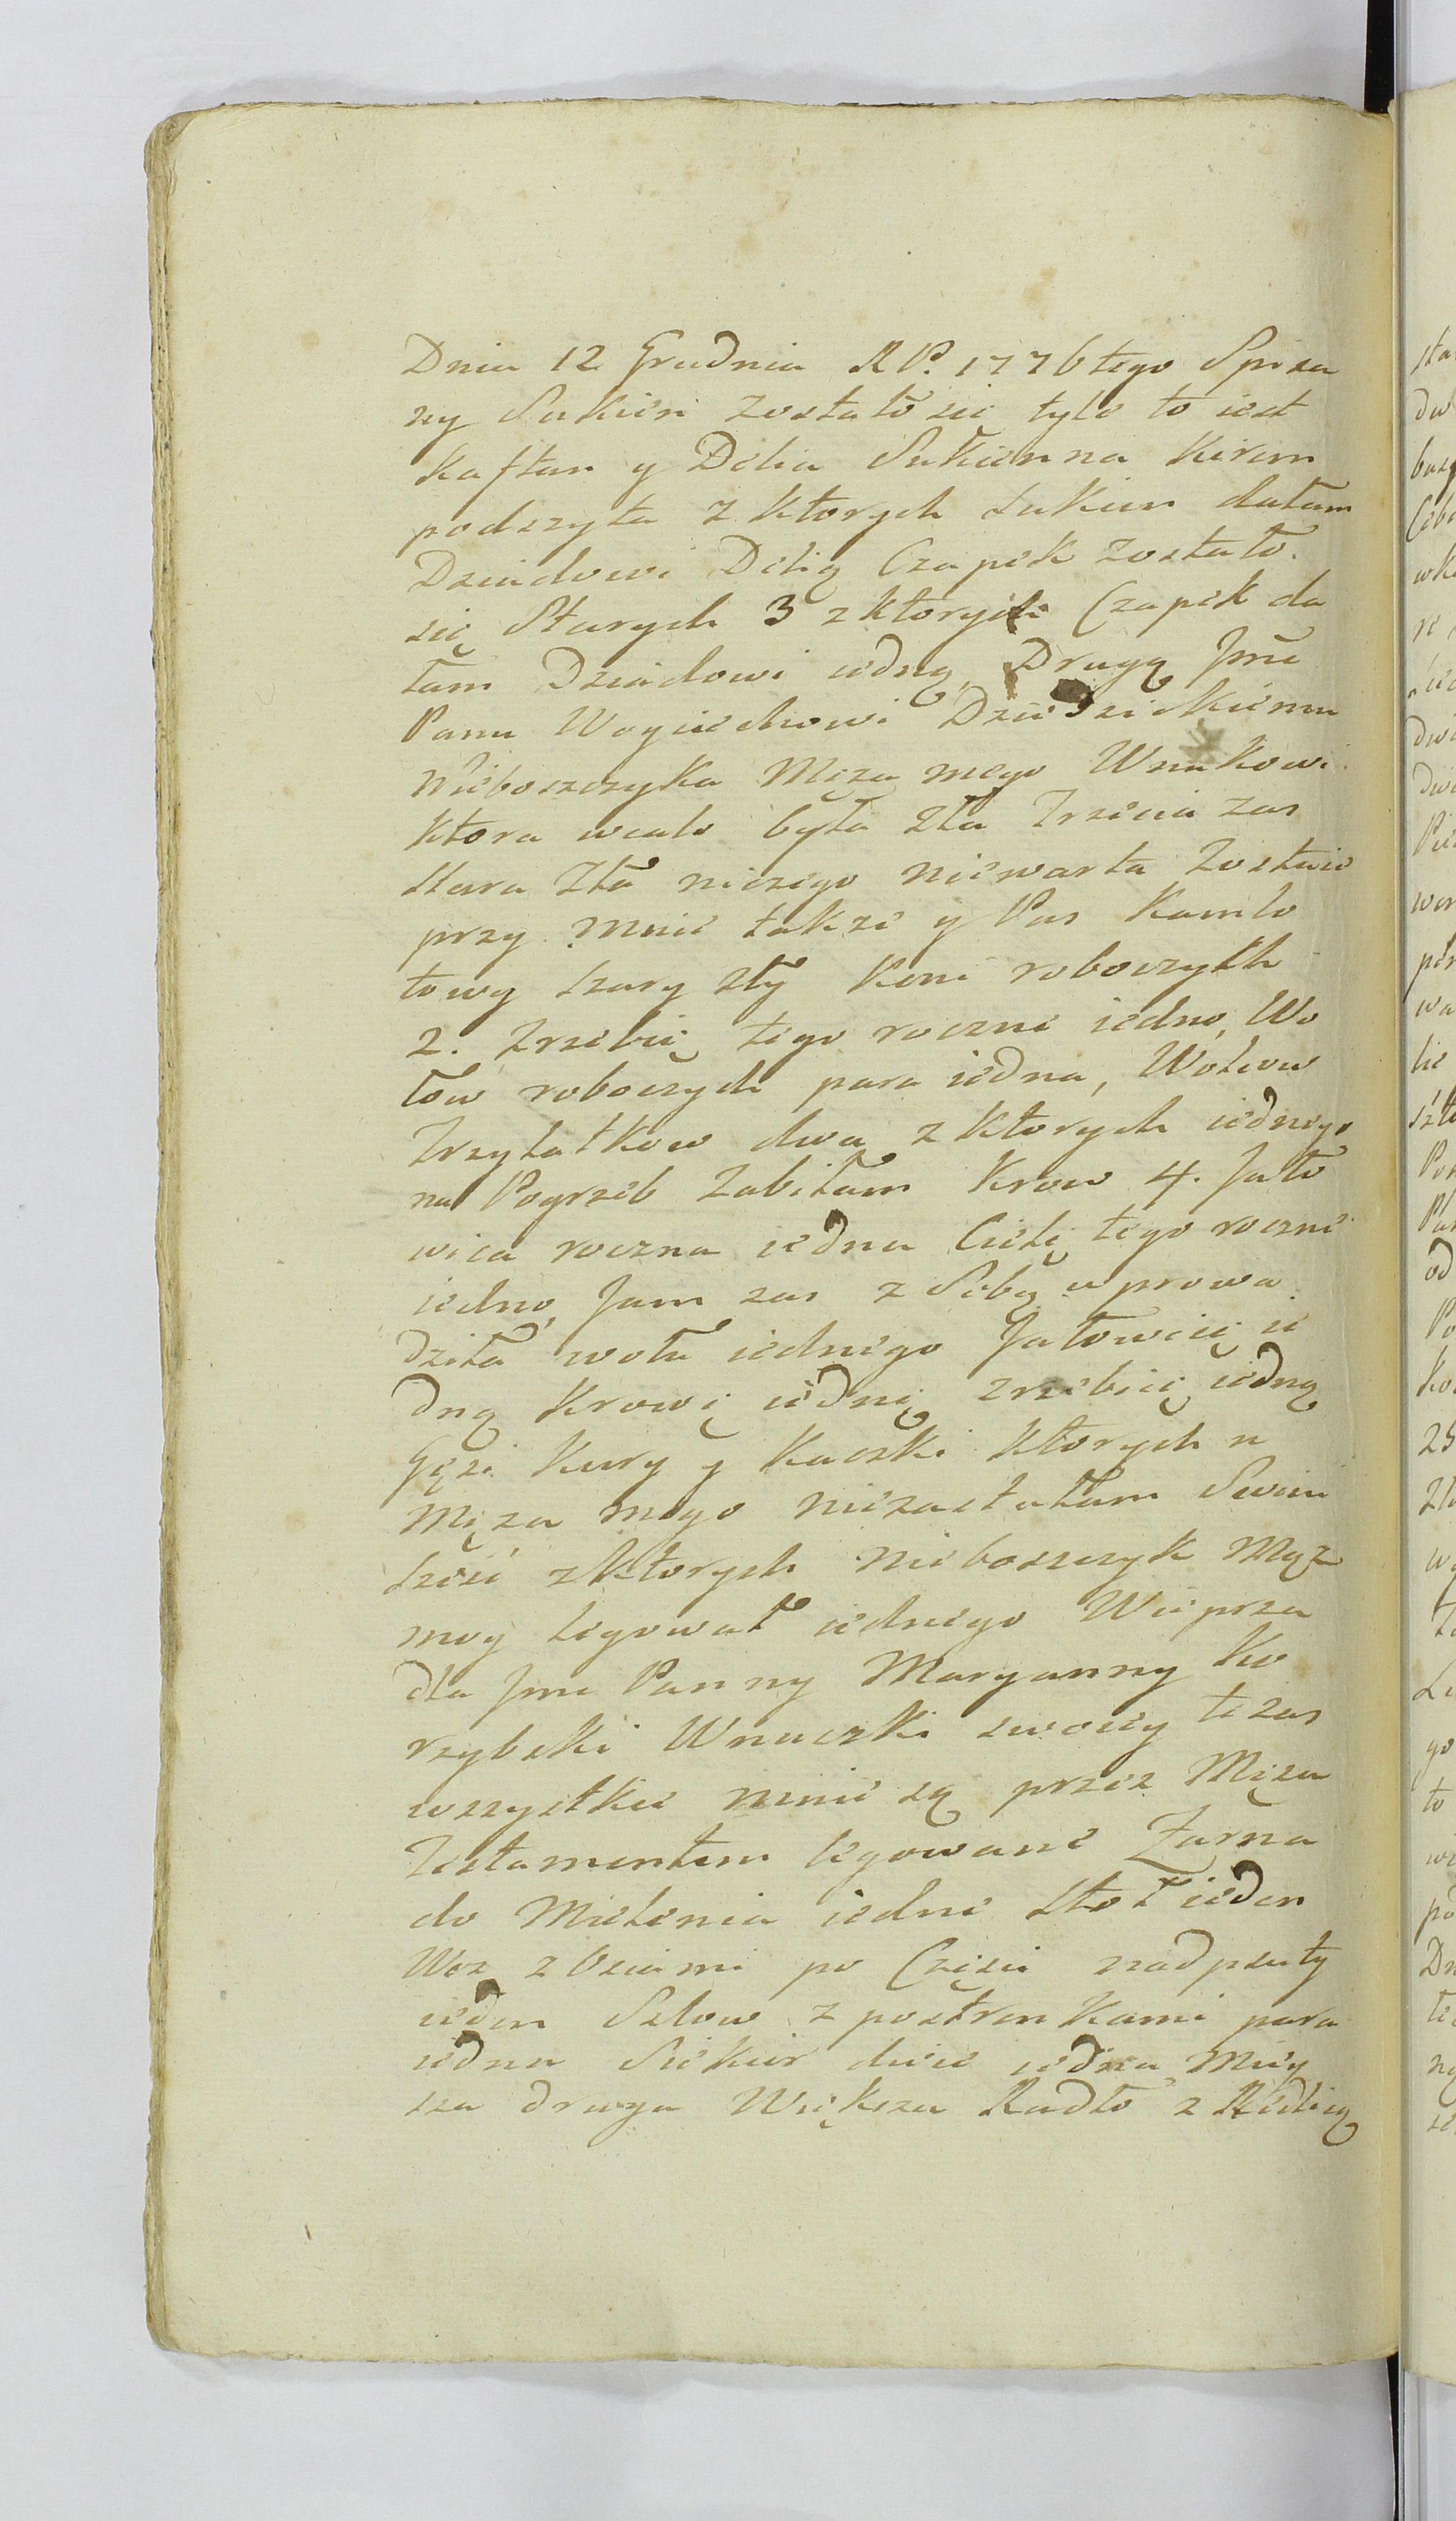 Dnia 12 Grudnia R P. 1776 tego Spisa
ny Sukien zostało się tylo to iest
Kaftan y Delia Sukienna kirem
podszyta z ktorych sukien dałam
Dziadowi Delią Czapek zostało
się Starych 3 z ktorych Czapek da
łam Dziadowi iedną Drugą Jme
Panu Woyciechowi
Nieboszczyka Męza mego Wnukowi
ktora wcale była zła Trzecia zas
stara zła niczego niewarta Zostaie
przy mnie takze y Pas kamlo
towy szary zły Koni roboczych
2. Zrzebie tego roczne iedno, Wo
łow roboczych para iedna, Wolcow
Trzylatkow dwa z ktorych iednego
na Pogrzeb Zabiłam Krow 4. Jało
wica roczna iedna Cielę tego roczne
iedno, Jam zas z Sobą wprowa
dziła wołu iednego Jałowicę ie
dną Krowę iednę zrzebicę iedną
Gęsi Kury y Kaczki ktorych u
Męza mego niezastałam Swini
sześć z ktorych nieboszczyk Mąz
moy legował iednego Wieprza
dla Jme Panny Maryanny Ko
rzybski Wnuczki swoiey te zas
wszystkie mnie są przez Męza
Testamentem legowane Żarna
do Mielenia iedne stoł ieden
Woz z Osiami po Części nadpsuty
ieden Selow z postronkami para
iedna Siekier dwie iedna Mniey
sza druga Większa Radło z Redlicą